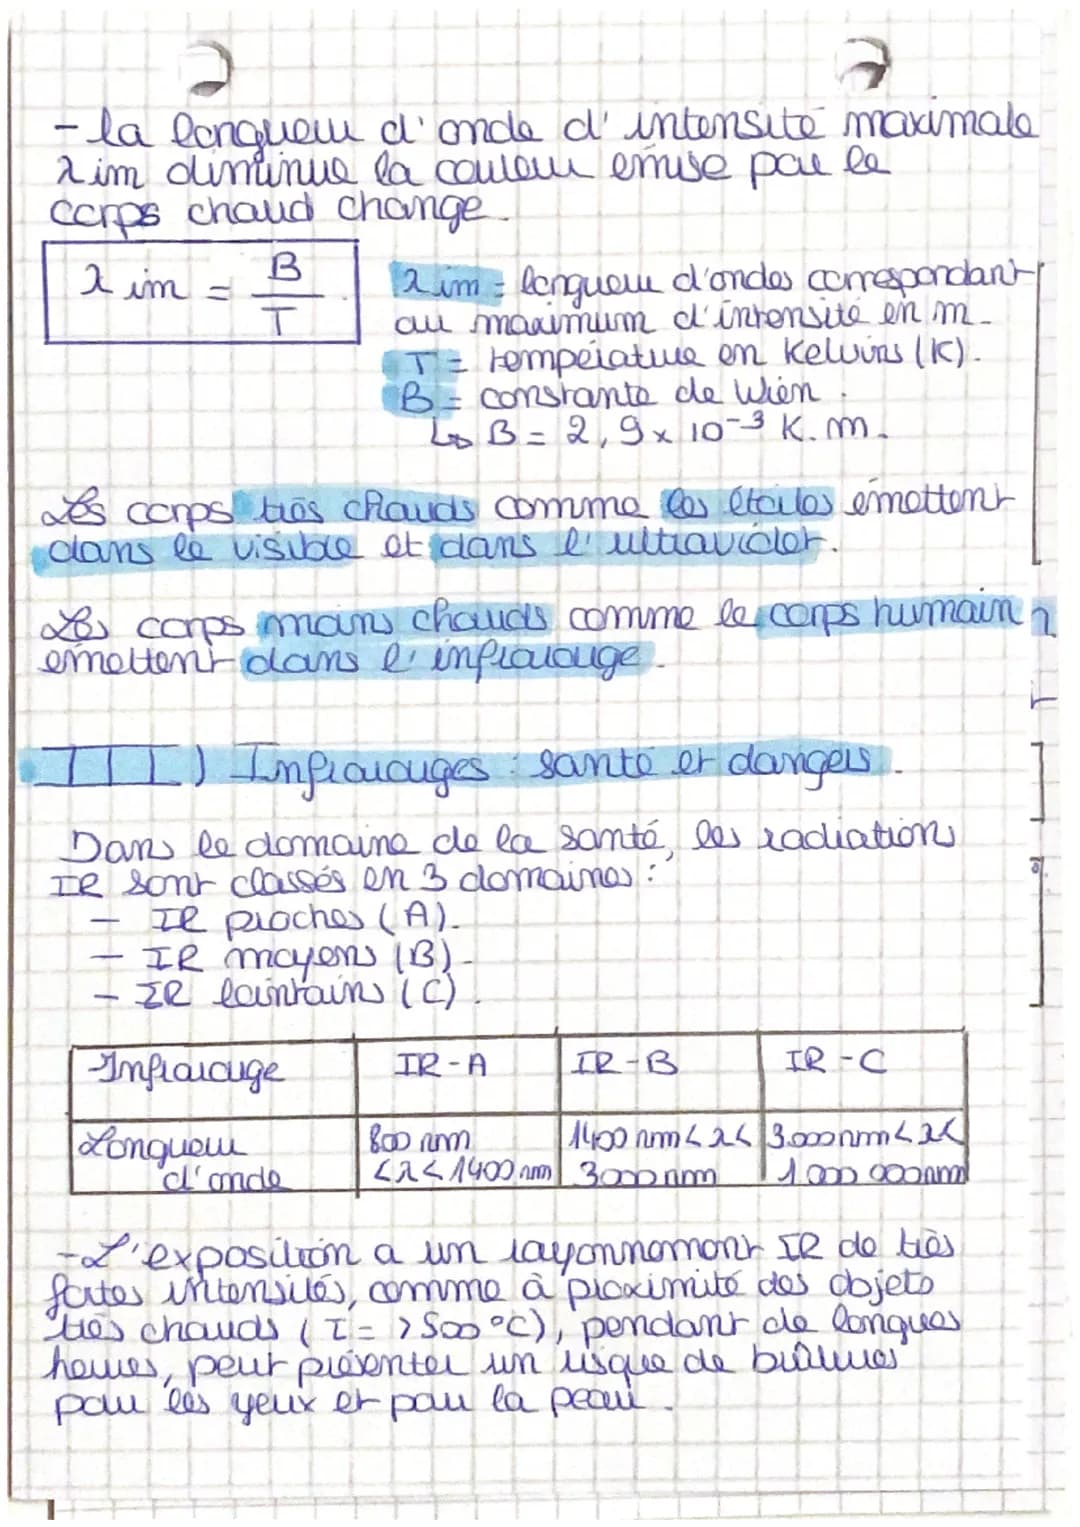 - la longueur d'onde d'intensité maximale
λim diminue la couleur émise par le
corps chaud change.
λim = B/T.
λim = longueur d'ondes correspondant
au maximum d'intensité en m.
T = température en Kelvins (K).
B = constante de Wien.
↳ B = 2,9 x 10⁻³ K.m.
Les corps très chauds comme les étoiles émettent
dans le visible et dans l'ultraviolet.
Les corps moins chauds comme le corps humain
émettent dans l'infrarouge.
III) Infrarouges : santé et dangers.
Dans le domaine de la santé, les radiations
IR sont classés en 3 domaines :
- IR proches (A).
- IR moyens (B).
- IR lointains (C).
Infrarouge IR-A IR-B IR-C
Longueur d'onde 800 nm < λ < 1400 nm 1400 nm < λ < 3000 nm 3000 nm < λ < 1 000 000 nm
- L'exposition a un rayonnement IR de très
fortes intensités, comme à proximité des objets
très chauds (T = > 500 °C), pendant de longues
heures, peut présenter un risque de brûlures
pour les yeux et pour la peau.